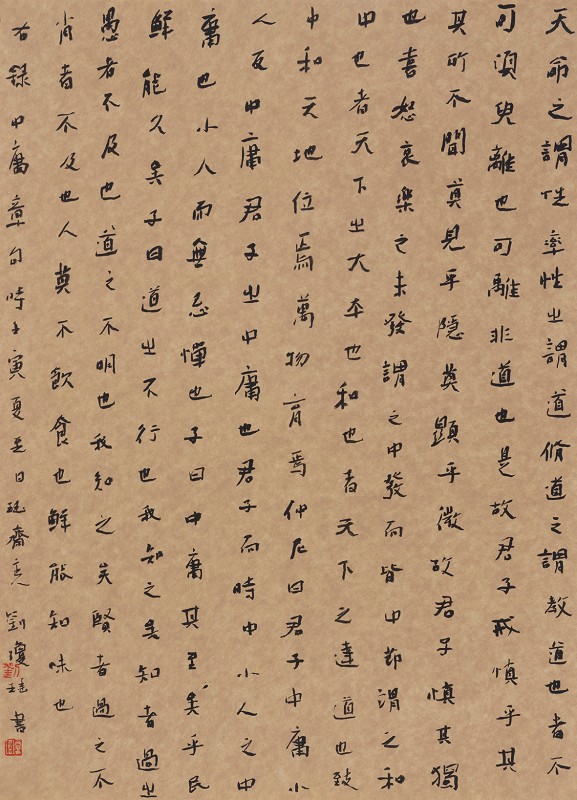 天命之謂性率性之謂道脩道之謂教道也者不
可須臾離也可離非道也是故君子戒慎乎其
其所不聞莫見乎隱莫顯乎微故君子慎其獨
也喜怒哀樂之未發謂之中發而皆中節謂之和
中也者天下之大本也和也者天下之達道也致
中和天地位焉萬物育焉仲尼曰君子中庸小
人反中庸君子之中庸也君子而時中小人之中
庸也小人而無忌憚也子曰中庸其至矣乎民
鮮能久矣子曰道之不行也我知之矣知者過之
愚者不及也道之不明也我知之矣賢者過之不
肖者不及也人莫不飲食也鮮能知味也
右錄中庸章句時壬寅夏至日齋劉瓊書